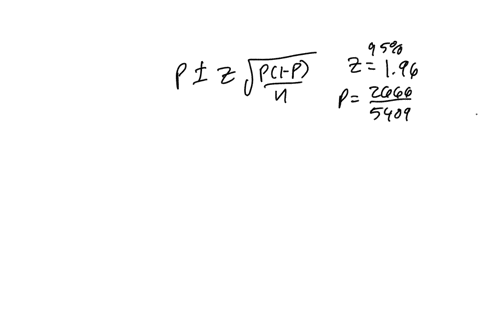 P ± z √(P(1-P)/n)
95%
z = 1.96
P = 2666/5409